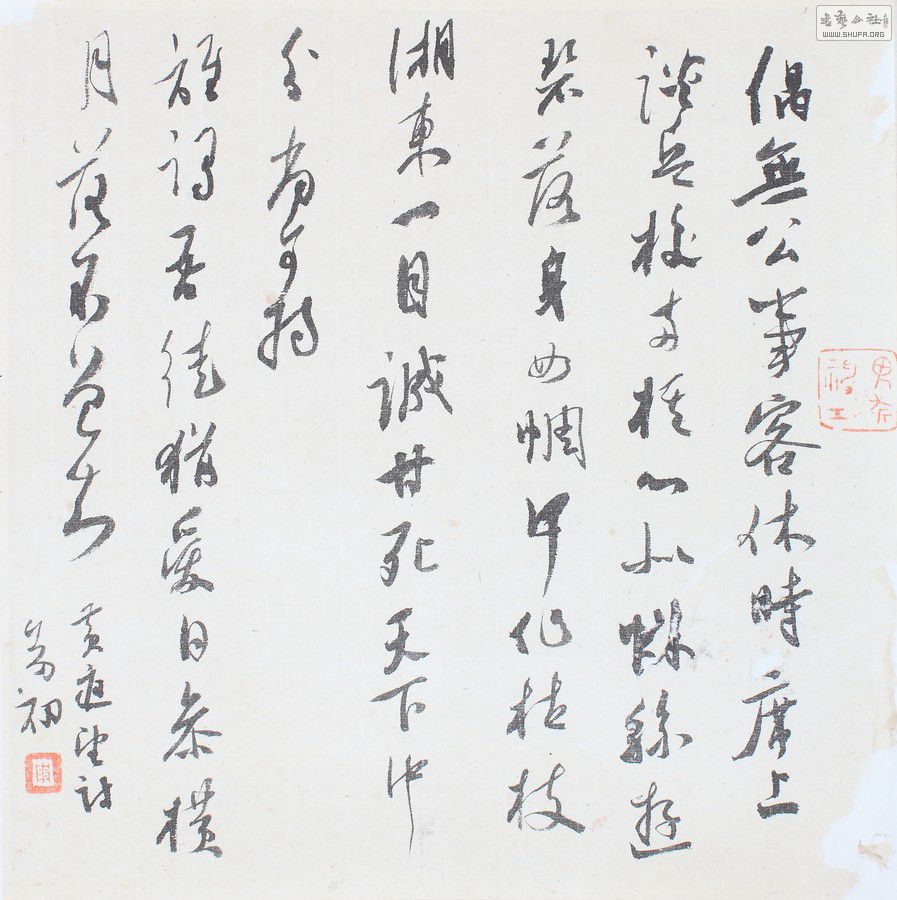 書藝公社
WWW.SHUFA.ORG
偶無公事客休時席上
談兵校兩棋心似蛛絲遊
碧落身如蜩甲化枯枝
湘東一目誠甘死天下中
分尚可持
誰謂吾徒猶愛日參橫
月落不曾知
黃庭堅詩